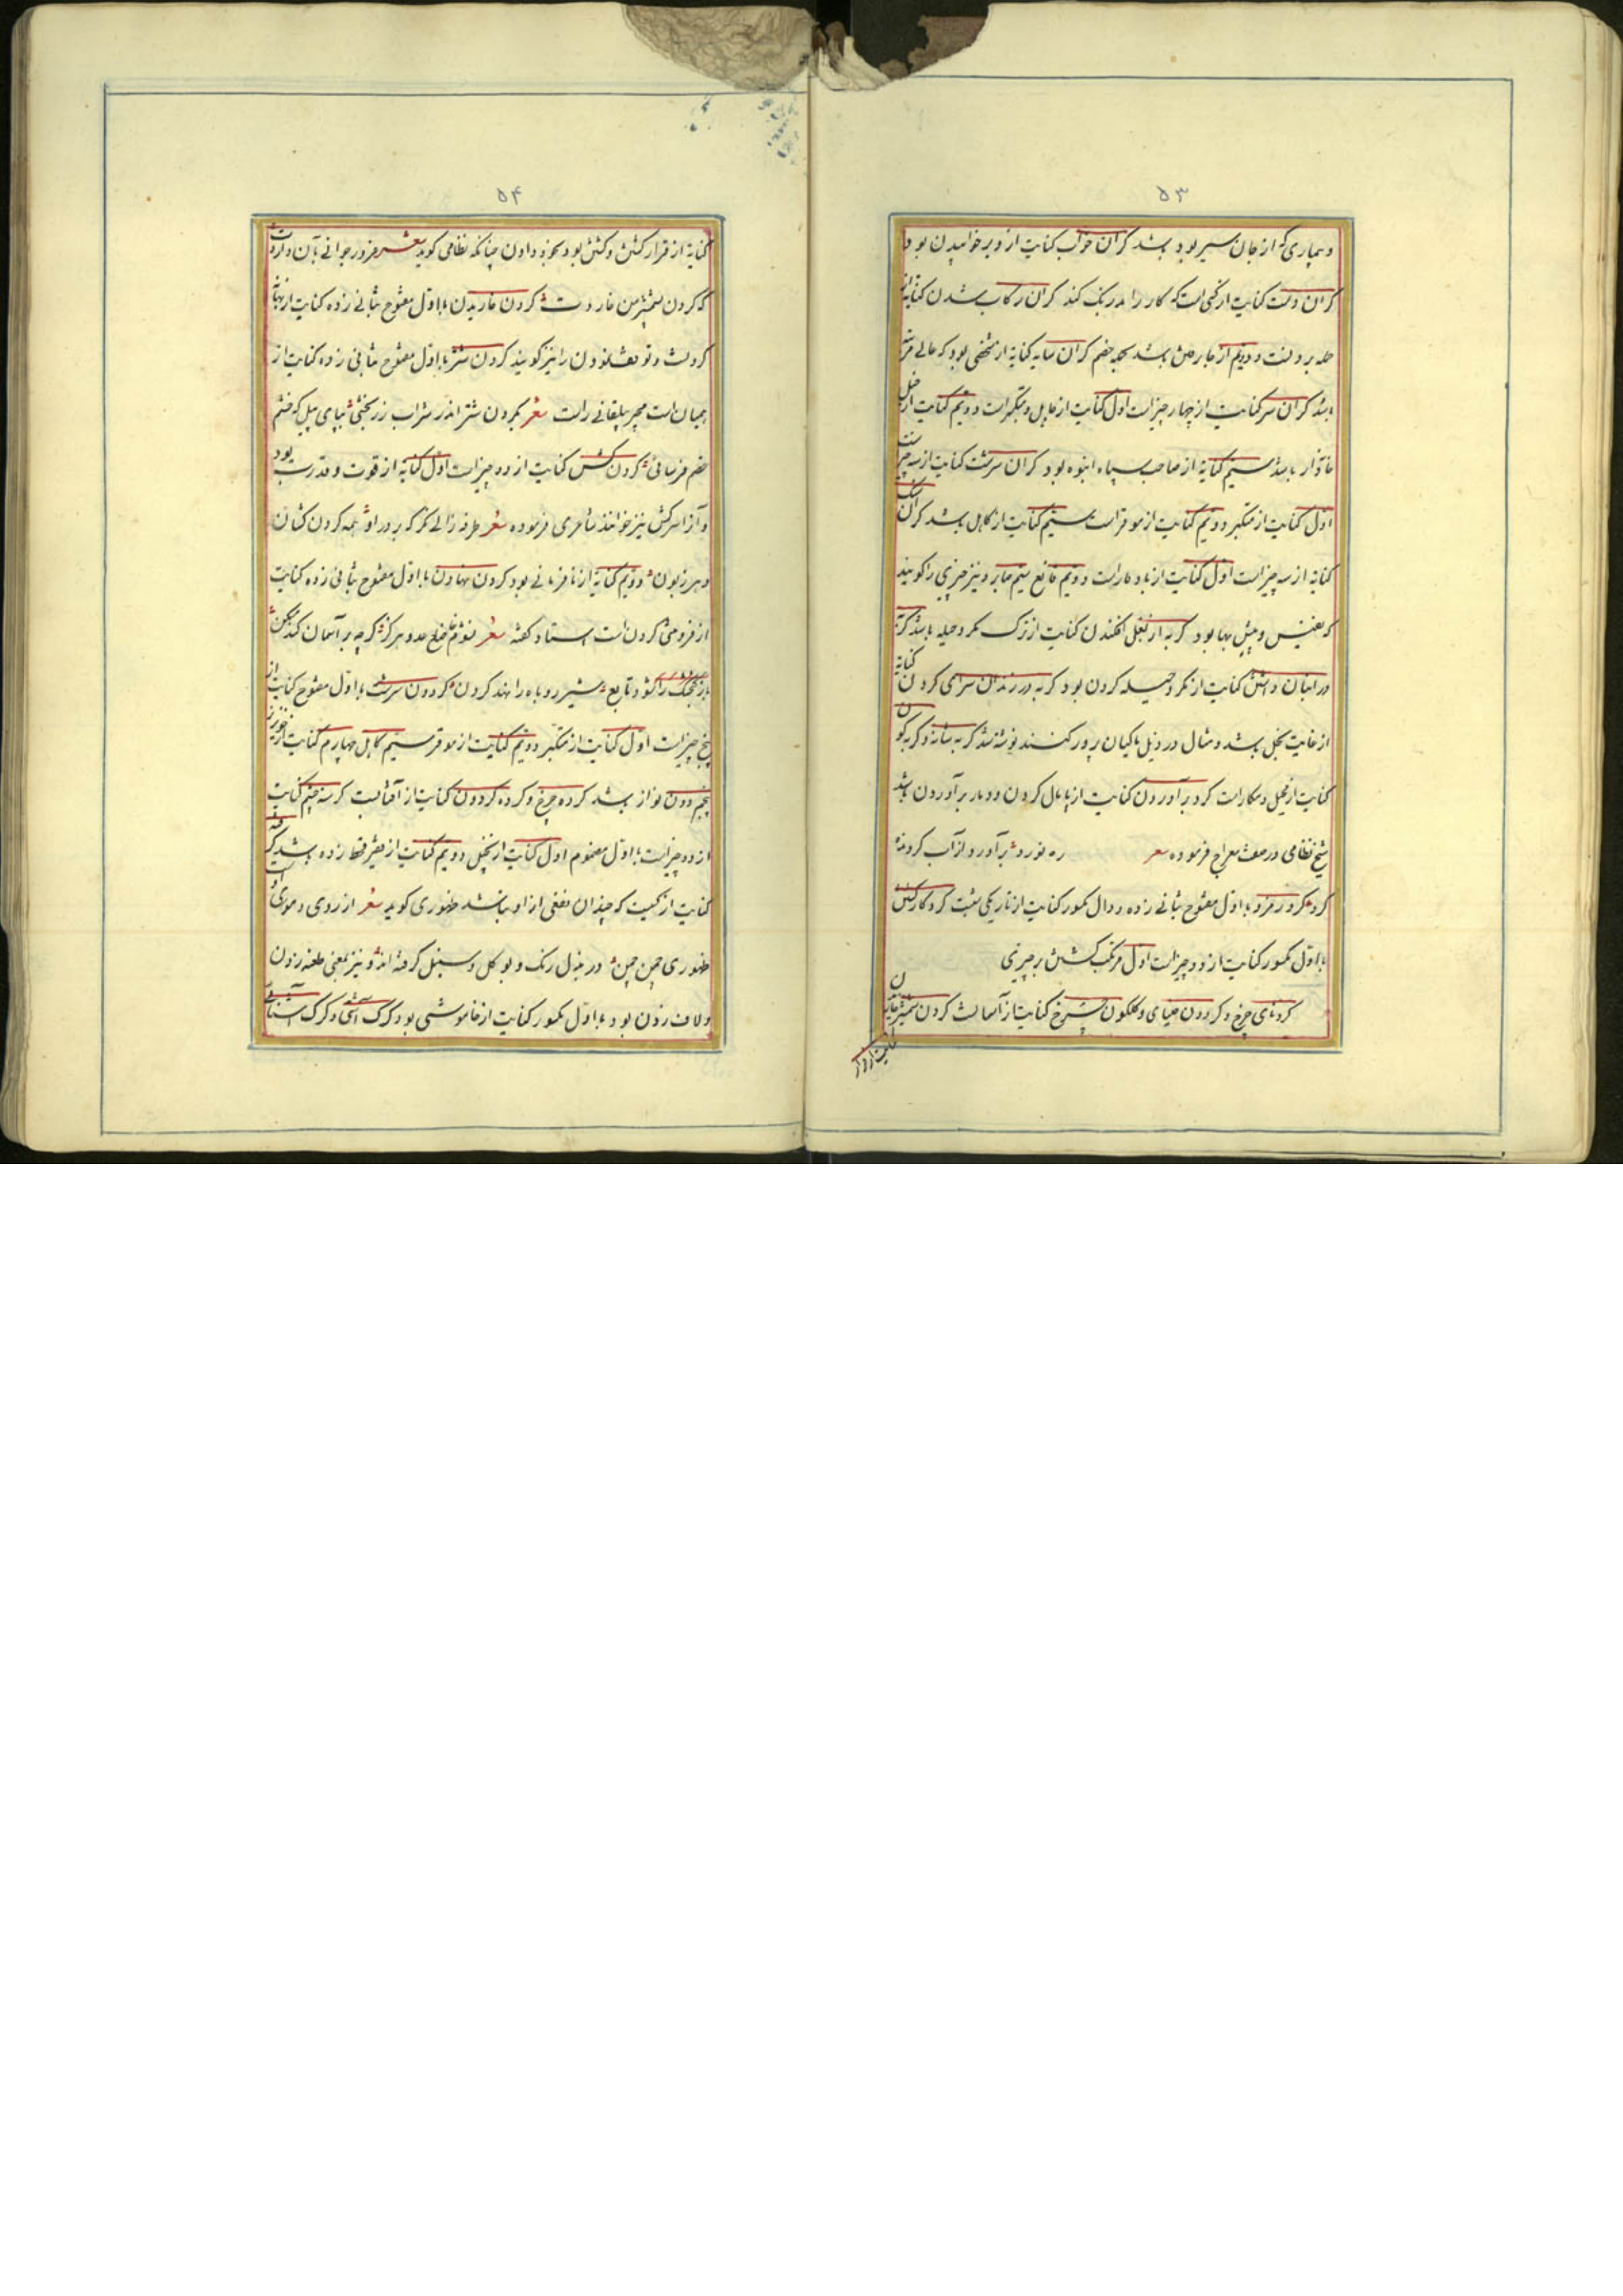 ۵۳
و بیماری که از جان سیر بود باشد گران خواب کنایت از دیر خوابیدن بود
گران دست کنایت از کسی است که کار را بدرنگ کند گران رکاب شدن کنایه از
حمله بر و دویم از باشد بر خصم گران سایه کنایه از شخصی بود که عالی مرتبه
باشد گران سر کنایت از چهار چیز است اول کنایت از جاهل و متکبر است دویم کنایت از
باشد سیم کنایه از صاحب سپاه انبوه بود گران سرشت کنایت از سه چیز است
اول کنایت از متکبر دویم کنایت از موقر است سیم کنایت از کاهل باشد گران سنگ
کنایه از سه چیز است اول کنایت از با وقار است دویم قانع سیم صابر و نیز چیزی را گویند
که نفیس و بیش بها بود گربه از بغل افکندن کنایت از ترک مکر و حیله باشد گربه
در انبان داشتن کنایت از مکر و حیله کردن بود گربه در زندان سرای کردن کنایه
از غایت بخل باشد و مثال در ذیل ماکیان بر در کنند نوشته شد گربه شانه و گربه گون
کنایت از محیل و مکار است گرد برآوردن کنایت از پامال کردن و دمار برآوردن باشد
شیخ نظامی در صفت معراج فرموده شعر ره نورد برآورد از آب گرد
با اول مفتوح بثانی زده و دال مکسور کنایت از تاریکی شب
با اول مکسور کنایت از دو چیز است اول مرتکب شدن بر چیزی
گردنای چرخ و گردون کنایت از آسمان است گردن شمشیر خاریدن
۵۴
کنایه از قرار کشش و کشتن بود بخود دادن چنانکه نظامی گوید شعر غرور جوانی بآن داردت
که گردن بشمشیر من خاردت گردن خاریدن با اول مفتوح بثانی زده کنایت از بهانه
کردنست و توقف نمودن را نیز گویند گردن شتر با اول مفتوح بثانی زده کنایت از
همیان است مجیر بیلقانی راست شعر بگردن شتر اندر شراب زر بخشی بپای پیل که خشم
خصم فرسائی گردن کش کنایت از دو چیز است اول کنایه از قوت و قدرت بود
و آنرا سرکش نیز خوانند شاعری فرموده شعر طرفه زالی نگر که بر در او همه گردن کشان
دهر زبون دویم کنایه از نافرمانی بود گردن نهادن با اول مفتوح بثانی زده کنایت
از فروتنی کردن است استاد گفته شعر
شیر روباه را نهد گردن گردون سرشت با اول مفتوح کنایت از
پنج چیز است اول کنایت از متکبر دویم کنایت از موقر سیم کاهل چهارم کنایت از خونریز
پنجم دون نواز باشد گرده چرخ و گرده گردون کنایت از آفتابست گرسنه چشم کنایت
از دو چیز است با اول مضموم اول کنایت از بخل دویم کنایت از فقیر قحط زده باشد
کنایت از کیست که چندان نفعی از او نباشد ظهوری گوید شعر از روی و موی او
ظهوری چمن چمن در بذل رنگ و بو گل و سنبل گرفته اند و نیز بمعنی طعنه زدن
و لاف زدن بود با اول مکسور کنایت از خاموشی بود گرگ آشتی و گرگ آشنائی